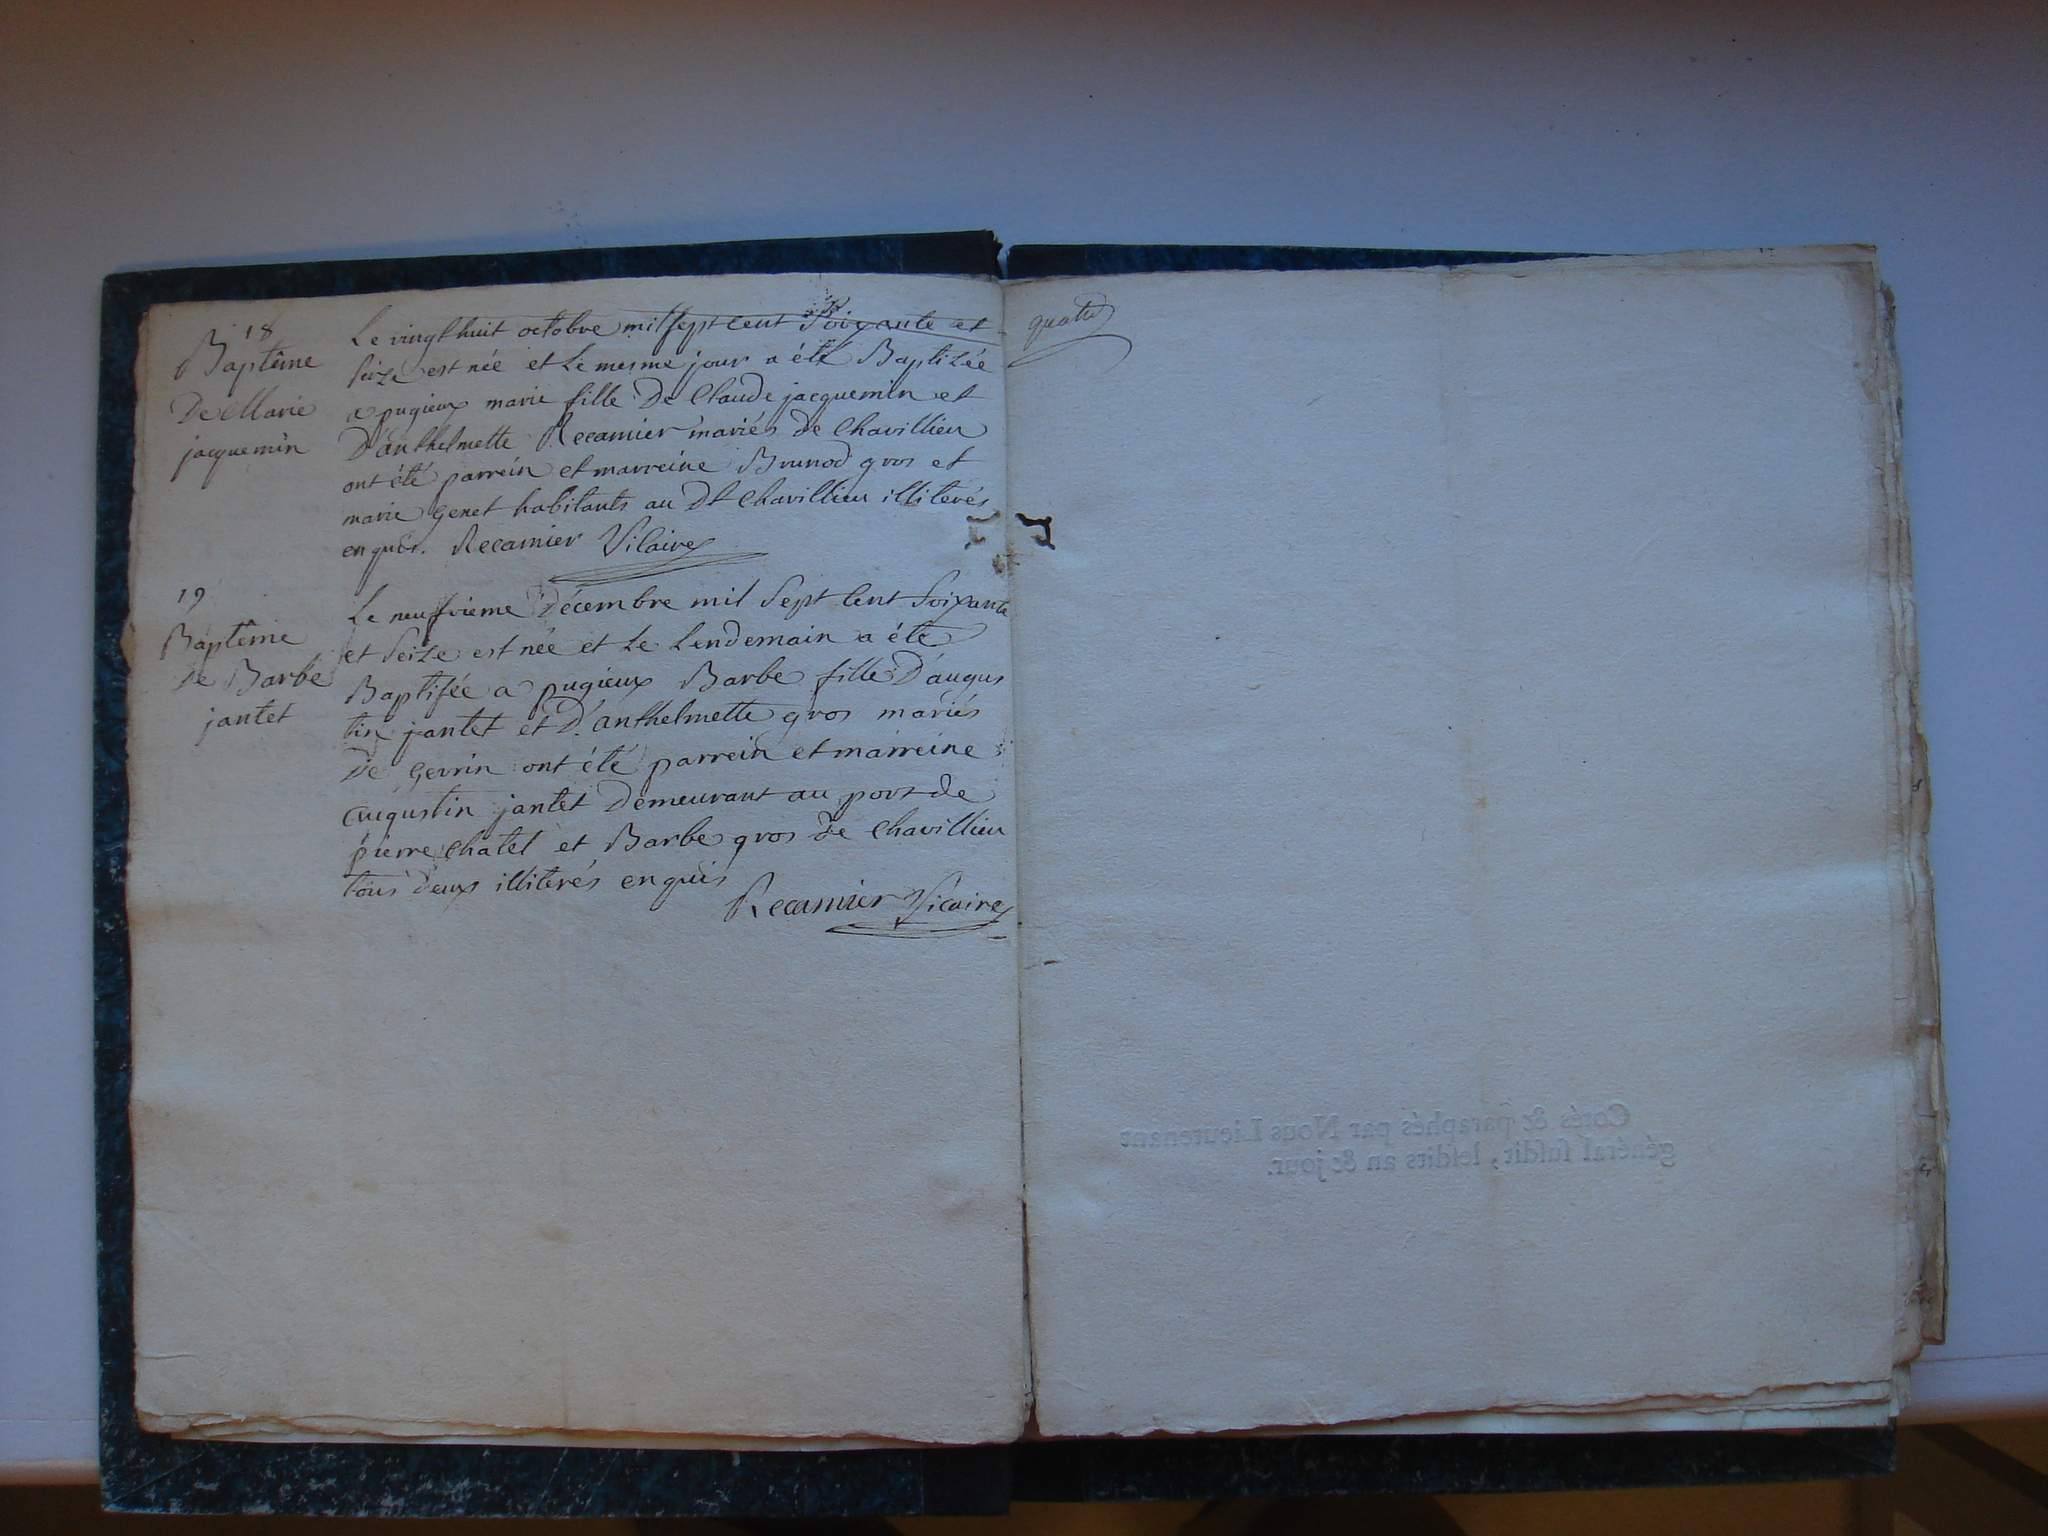 18
Baptême
De Marie
jacquemin
Le vingt huit octobre mil sept cent Soixante et
seize est née et Le mesme jour a été Baptizée
a pugieux marie fille De Claude jacquemin et
D'anthelmette Recamier mariés de Chavillieu
ont été parrein et marreine Brunod gros et
marie genet habitants au Dt Chavillieu illiterés
enquis. Recamier Vicaire
19
Baptême
De Barbe
jantet
Le neufvieme Décembre mil Sept Cent Soixante
et Seize est née et Le Lendemain a été
Baptisée a pugieux Barbe fille D'augus
tin jantet et D'anthelmette gros mariés
De gevrin ont été parrein et marreine
augustin jantet Demeurant au port de
pierre Chatel et Barbe gros de Chavillieu
tous deux illiterés enquis
Recamier Vicaire
quatre
Cotés & paraphés par Nous Lieutenant
général susdit, lesdits an & jour.